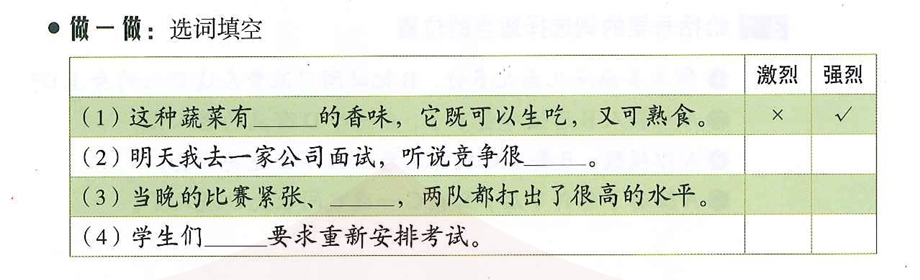 ● 做一做：选词填空
激烈 强烈
（1）这种蔬菜有_____的香味，它既可以生吃，又可熟食。 × √
（2）明天我去一家公司面试，听说竞争很_____。
（3）当晚的比赛紧张、_____，两队都打出了很高的水平。
（4）学生们_____要求重新安排考试。